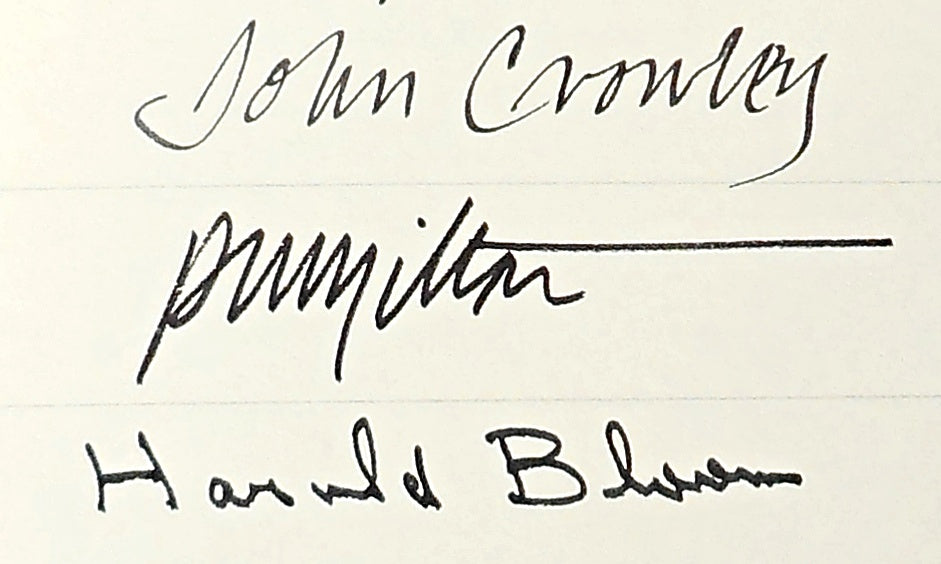 John Crowley
Harold Bloom